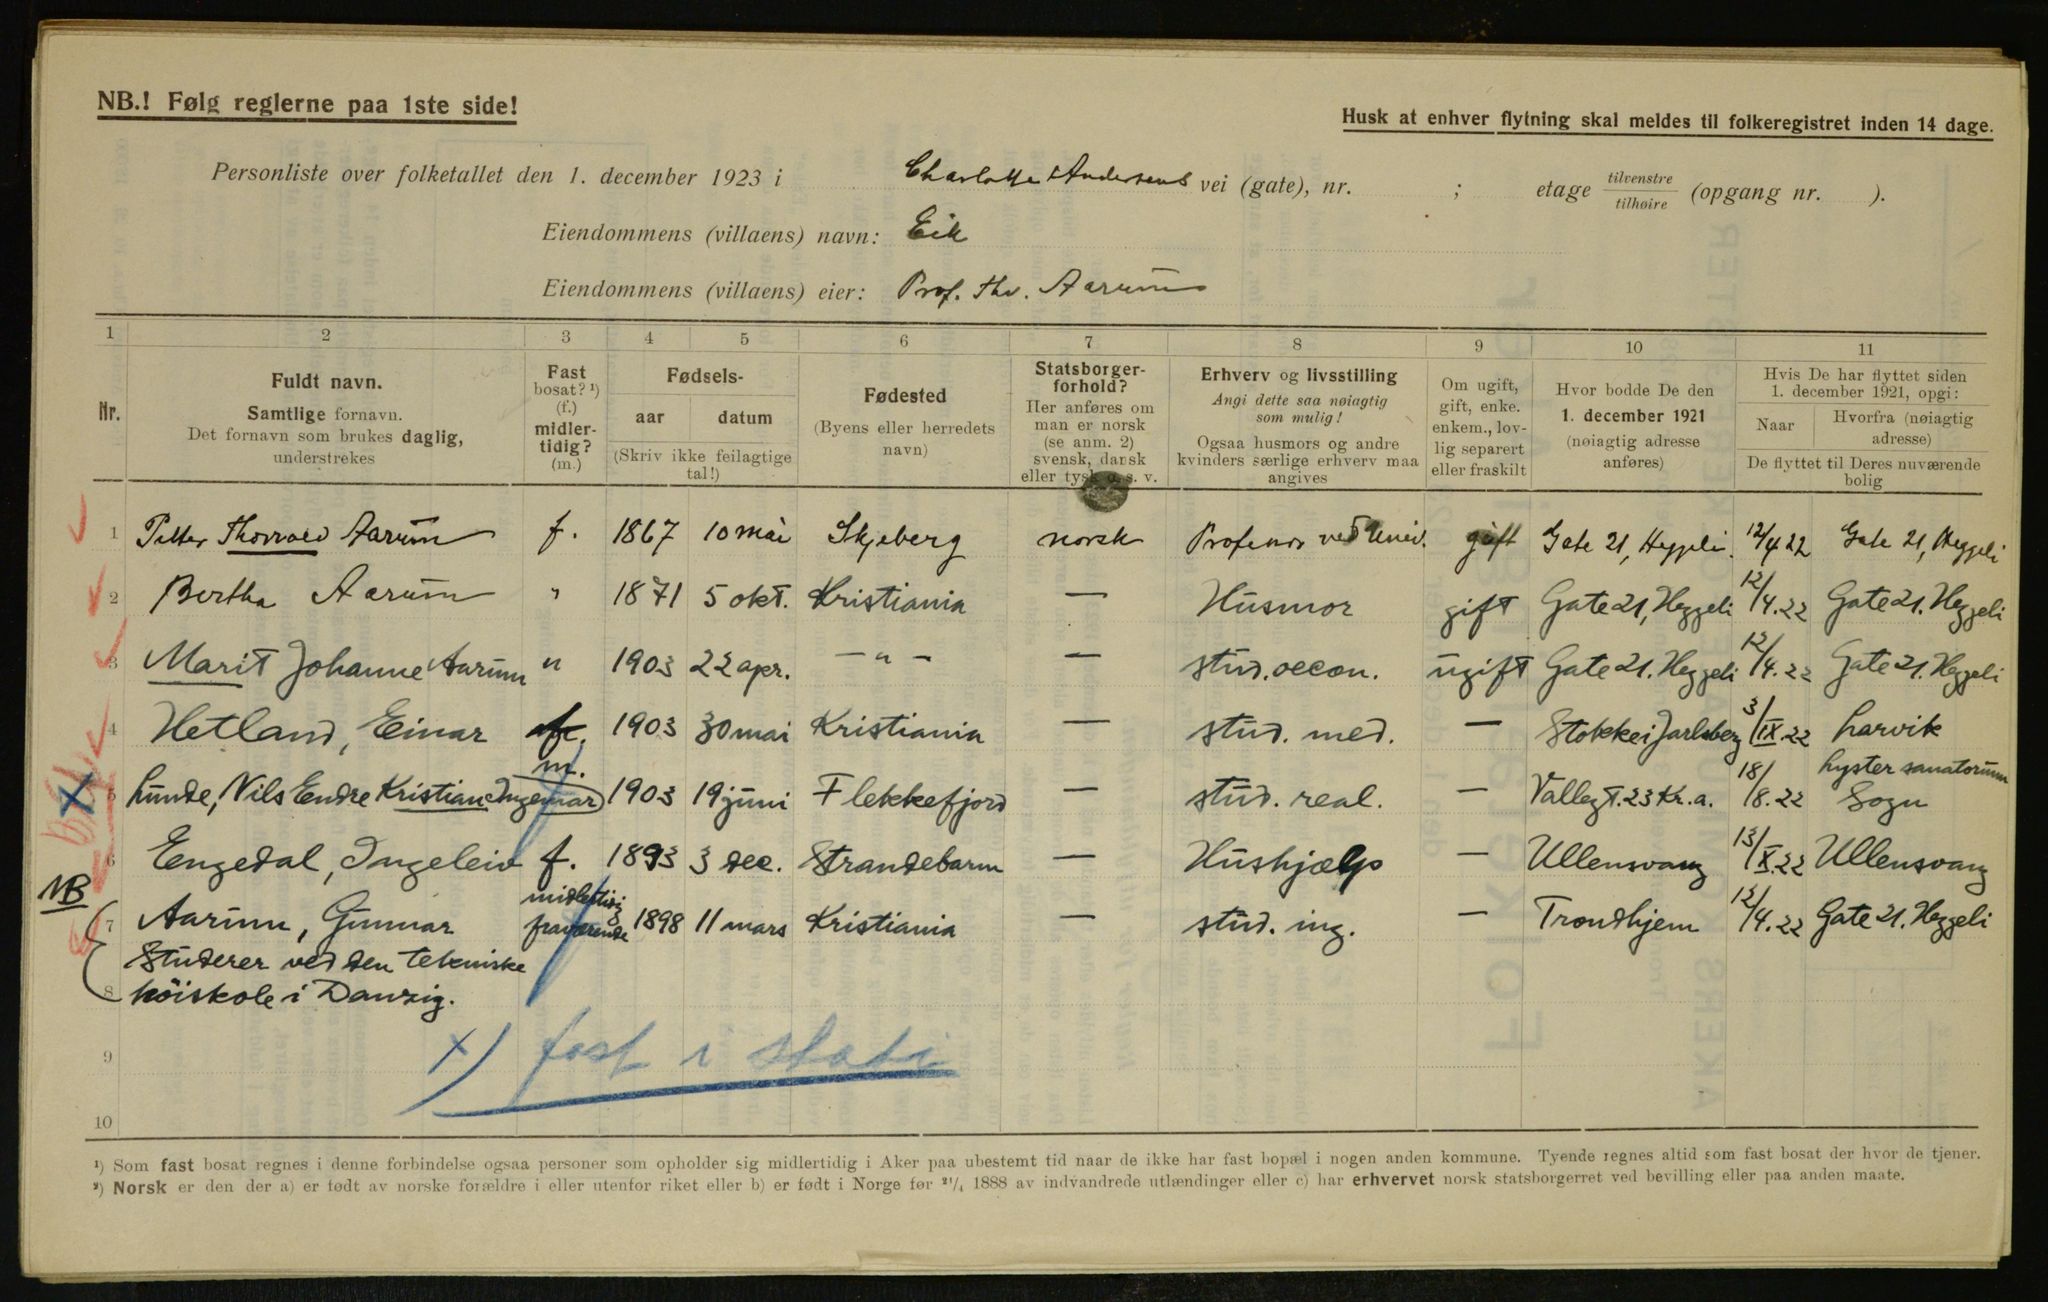 NB.! Følg reglerne paa 1ste side!
Husk at enhver flytning skal meldes til folkeregistret inden 14 dage.
Personliste over folketallet den 1. december 1923 i Charlotte Andersens vei (gate), nr. ; etage tilvenstre/tilhøire (opgang nr. ).
Eiendommens (villaens) navn: Eik
Eiendommens (villaens) eier: Prof. Thv. Aarum
1 2 3 4 5 6 7 8 9 10 11
Nr.
Fuldt navn.
Samtlige fornavn.
Det fornavn som brukes daglig,
understrekes
Fast
bosat? ¹)
(f.)
midler-
tidig?
(m.)
Fødsels-
aar datum
(Skriv ikke feilagtige
tal!)
Fødested
(Byens eller herredets
navn)
Statsborger-
forhold?
Her anføres om
man er norsk
(se anm. 2)
svensk, dansk
eller tysk o. s. v.
Erhverv og livsstilling
Angi dette saa nøiagtig
som mulig!
Ogsaa husmors og andre
kvinders særlige erhverv maa
angives
Om ugift,
gift, enke.
enkem., lov-
lig separert
eller fraskilt
Hvor bodde De den
1. december 1921
(nøiagtig adresse
anføres)
Hvis De har flyttet siden
1. december 1921, opgi:
Naar Hvorfra (nøiagtig
adresse)
De flyttet til Deres nuværende
bolig
1 Petter Thorvald Aarum f. 1867 10 mai Skjeberg norsk Professor ved Univ. gift Gate 21, Heggeli. 12/4 22 Gate 21, Heggeli
2 Bertha Aarum " 1871 5 okt. Kristiania — Husmor gift Gate 21, Heggeli 12/4.22 Gate 21. Heggeli
3 Marit Johanne Aarum " 1903 22 apr. — " — — stud. oecon. ugift Gate 21. Heggeli 12/4.22 Gate 21. Heggeli
4 Hetland, Einar m. 1903 30 mai Kristiania — stud. med. — Stokke i Jarlsberg 3/IX.22 Larvik
5 Lunde, Nils Endre Kristian Ingemar 1903 19 juni Flekkefjord — stud. real. — Vallegt. 23 Kr.a. 18/8.22 Lyster sanatorium
Sogn
6 Eengedal, Ingeleiv f. 1893 3 dec. Strandebarm — Hushjælp — Ullensvang 13/X.22 Ullensvang
NB
7 Aarum, Gunnar midlertidig
fraværende 1898 11 mars Kristiania — stud. ing. — Trondhjem 12/4.22 Gate 21. Heggeli
Studerer ved den tekniske
8 høiskole i Danzig.
9 x) fast i
10
¹) Som fast bosat regnes i denne forbindelse ogsaa personer som opholder sig midlertidig i Aker paa ubestemt tid naar de ikke har fast bopæl i nogen anden kommune. Tyende regnes altid som fast bosat der hvor de tjener.
²) Norsk er den der a) er født av norske forældre i eller utenfor riket eller b) er født i Norge før ²¹/₄ 1888 av indvandrede utlændinger eller c) har erhvervet norsk statsborgerret ved bevilling eller paa anden maate.